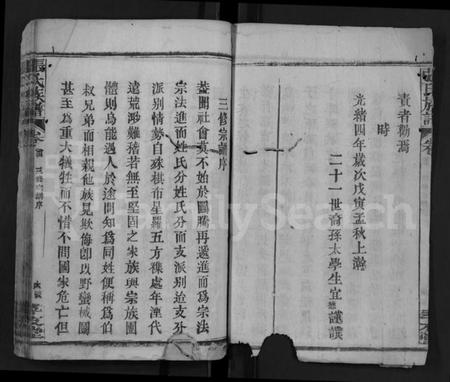 責者勸焉
時
光緒四年歲次戊寅孟秋上瀚
二十一世裔孫太學生宜謹譔
三修宗譜序
蓋聞社會莫不始於圖騰再遞進而爲宗法
宗法進而姓氏分姓氏分而支派別迨支分
派別情勢自殊棋布星羅五方襍處年湮代
遠荒渺難稽若無至堅固之家族與宗族團
體則烏能遇人於途間知爲同姓便稱爲伯
叔兄弟而相親他族見欺侮卽以野蠻械鬭
甚至爲重大犧牲而不惜不問國家危亡但
氏族譜
三修宗譜序
FamilySearch